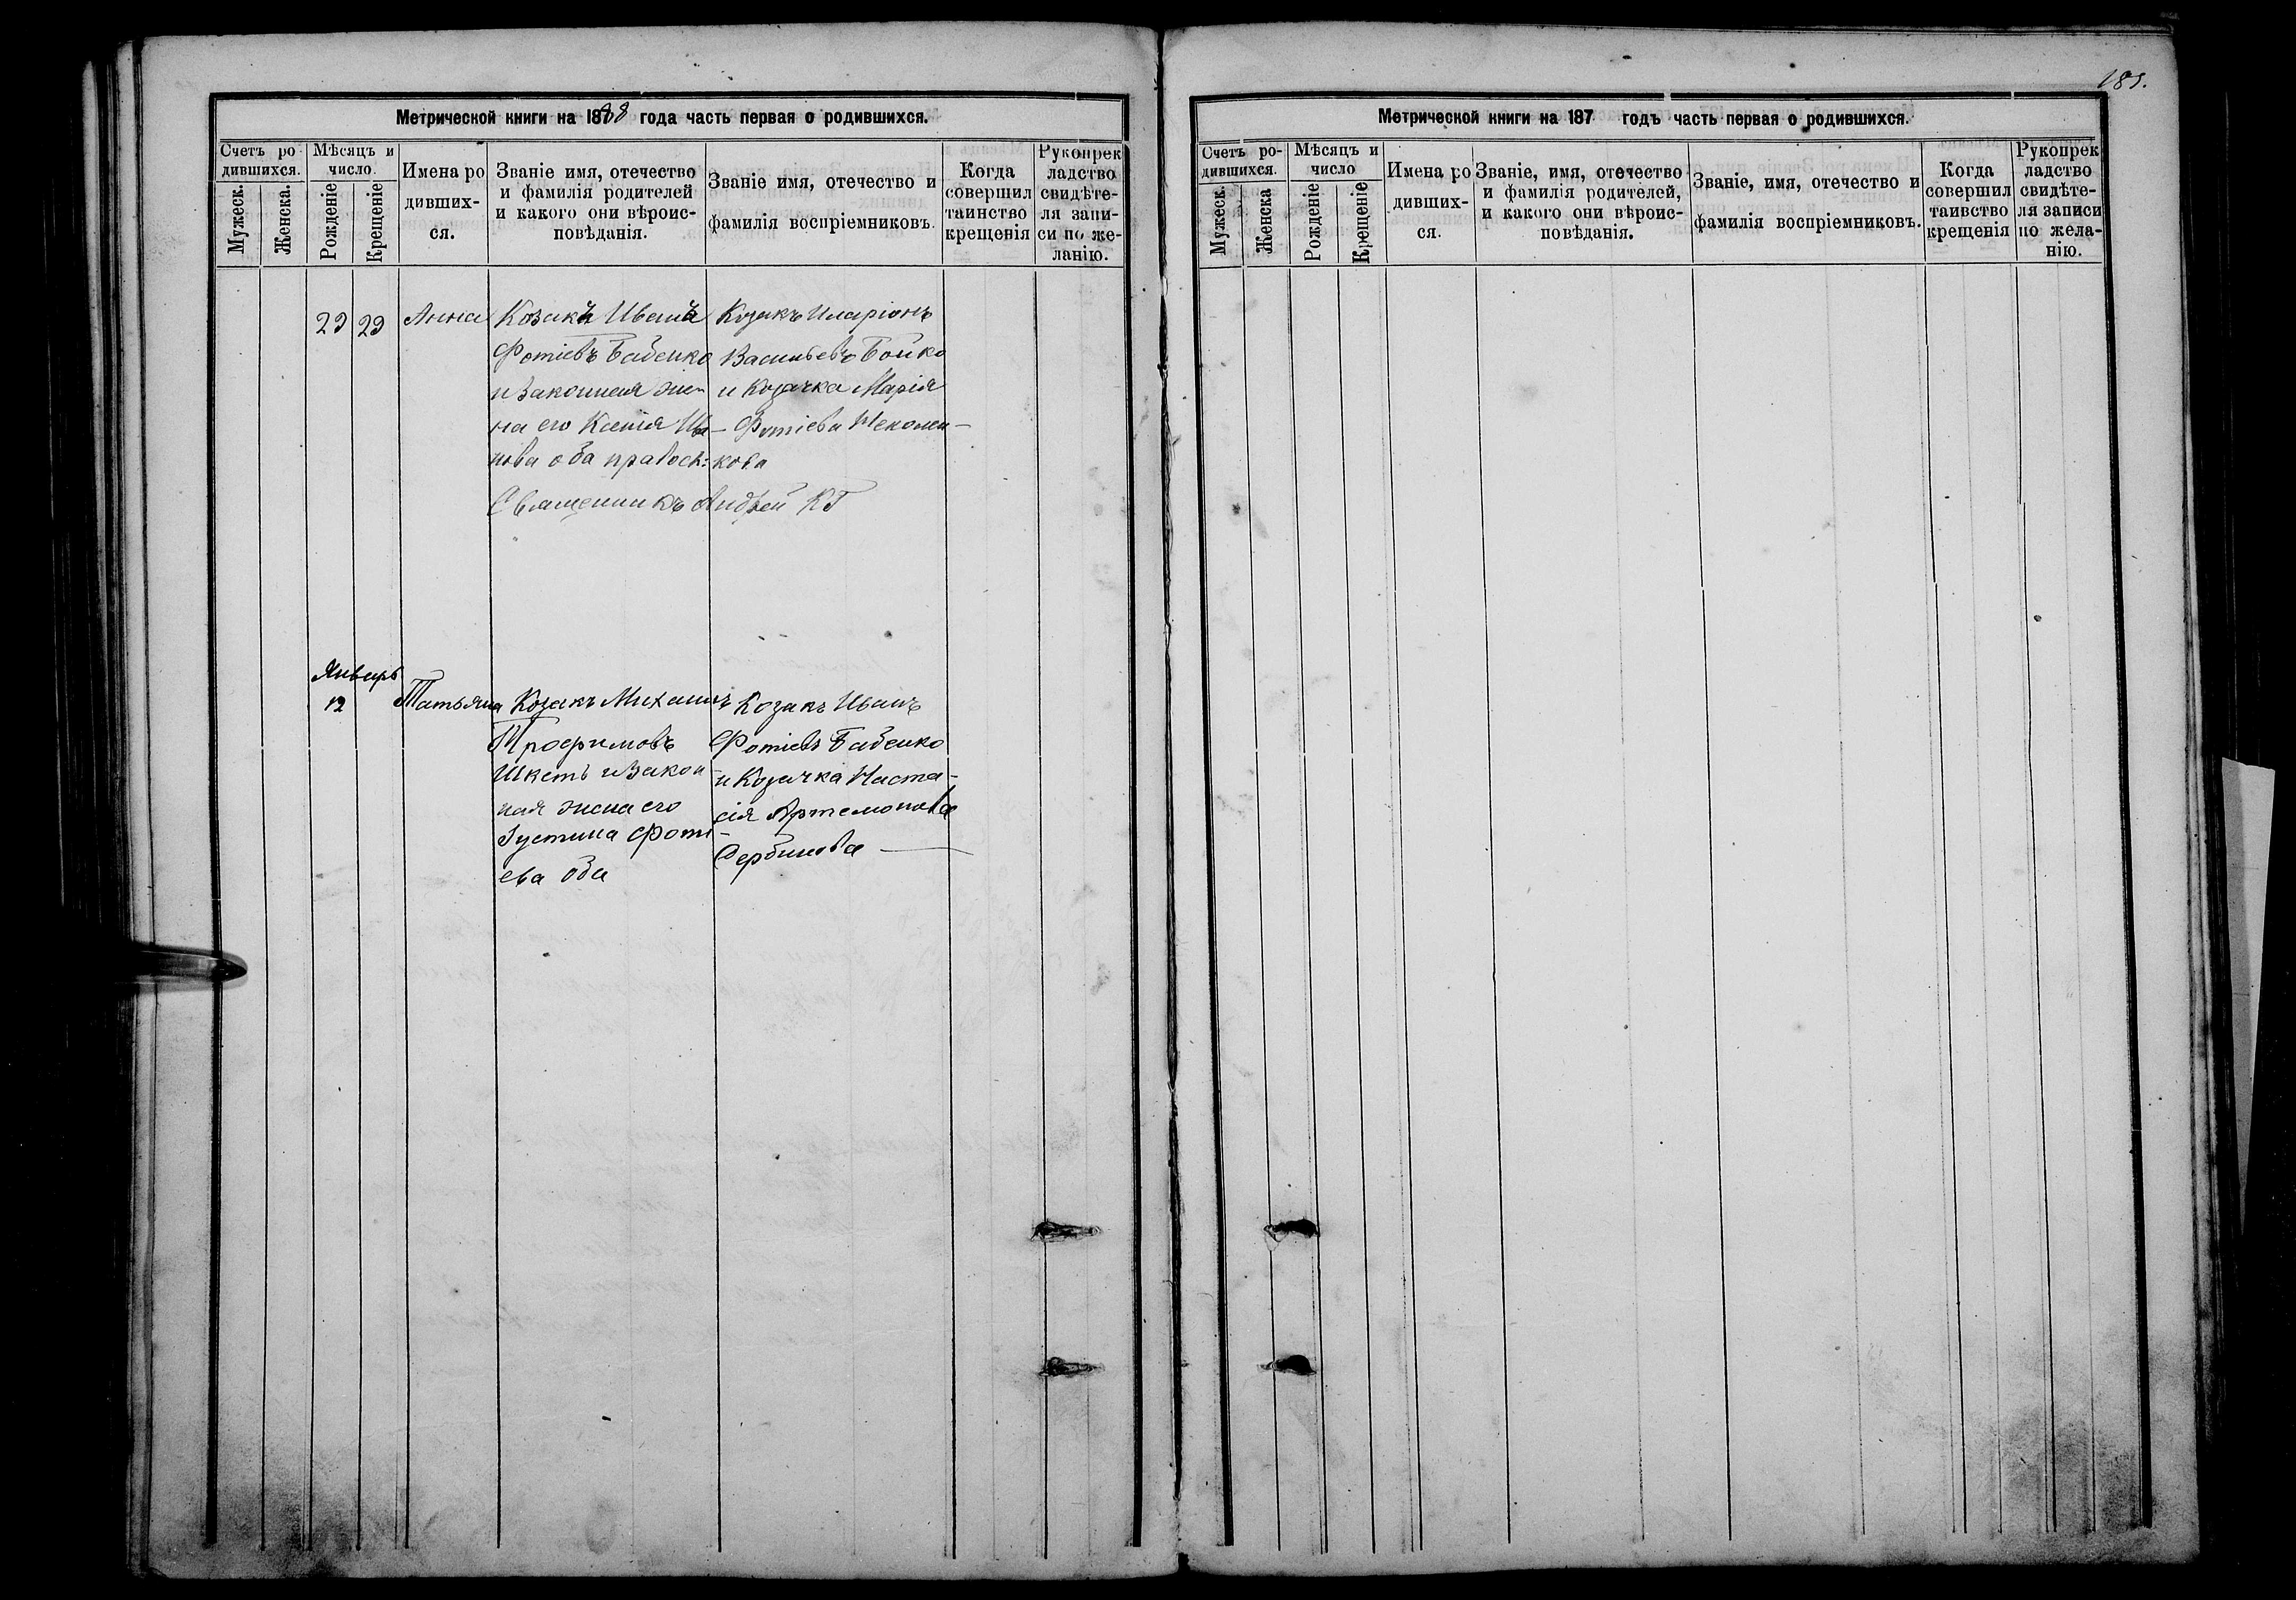 185.
Метрической книги на 1888 года часть первая о родившихся.
Счетъ ро дившихся.
Мужеск.
Женска.
Мѣсяцъ и число.
Рожденіе
Крещеніе
Имена ро дивших- ся.
Званіе имя, отечество и фамилія родителей и какого они вѣроис- повѣданія.
Званіе имя, отечество и фамилія воспріемниковъ.
Когда совершил таинство крещенія
Рукопрек ладство свидѣте- ля запи- си по же- ланію.
29 29 Анна
Козакъ Иванъ
Фотіевъ Бабенко
и Законная же-
на его Ксенія Ива-
нова оба правосл:
Козакъ Иларіонъ
Васильевъ Бойко
и Козачка Марія
Фотіева
кова
Священникъ Андрей КГ
Январь
12 Татьяна
Козакъ Михаилъ
Трофимовъ
Шкетъ и Закон-
ная жена его
Іустина Фоті-
ева оба
Козакъ Иванъ
Фотіевъ Бабенко
и Козачка Наста-
сія Артемонова
Дербинова
Метрической книги на 187 годъ часть первая о родившихся.
Счетъ ро- дившихся.
Мужеск.
Женска
Мѣсяцъ и число
Рожденіе
Крещеніе
Имена ро дивших- ся.
Званіе, имя, отечество и фамилія родителей, и какого они вѣроис- повѣданія.
Званіе, имя, отечество и фамилія воспріемниковъ.
Когда совершил таивство крещенія
Рукопрек ладство свидѣте- ля записи по жела- нію.